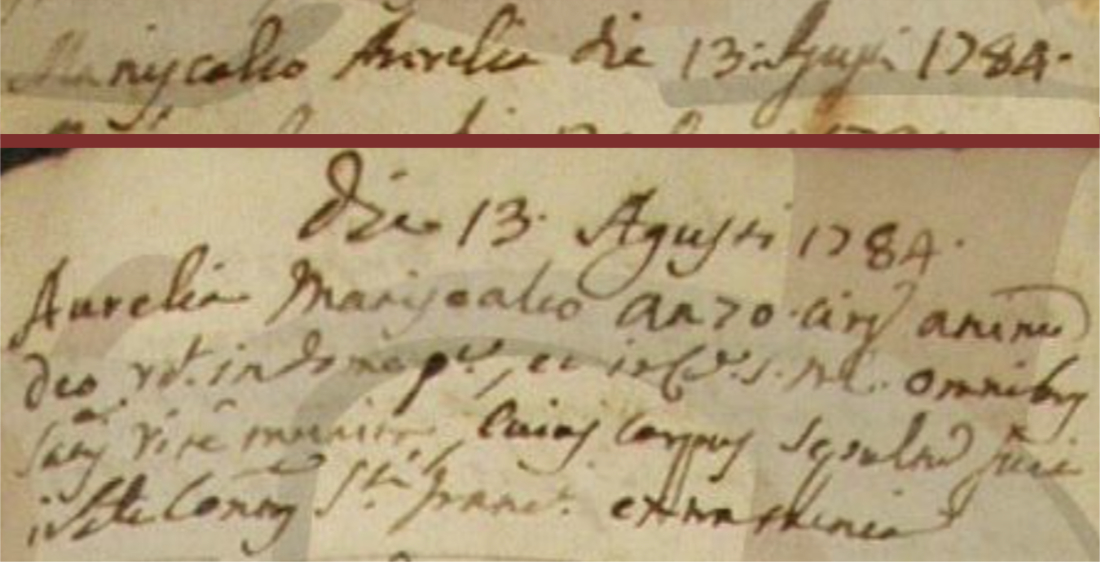 Mariscalco Aurelia die 13: Agusti 1784.
die 13. Agusti 1784.
Aurelia Mariscalco an 70. circ animã
deo rd. in domo pa, et in C S. M. E. omnibus
sacrs rite munita, cuius corpus sepultũ fuit
Sti Franc.